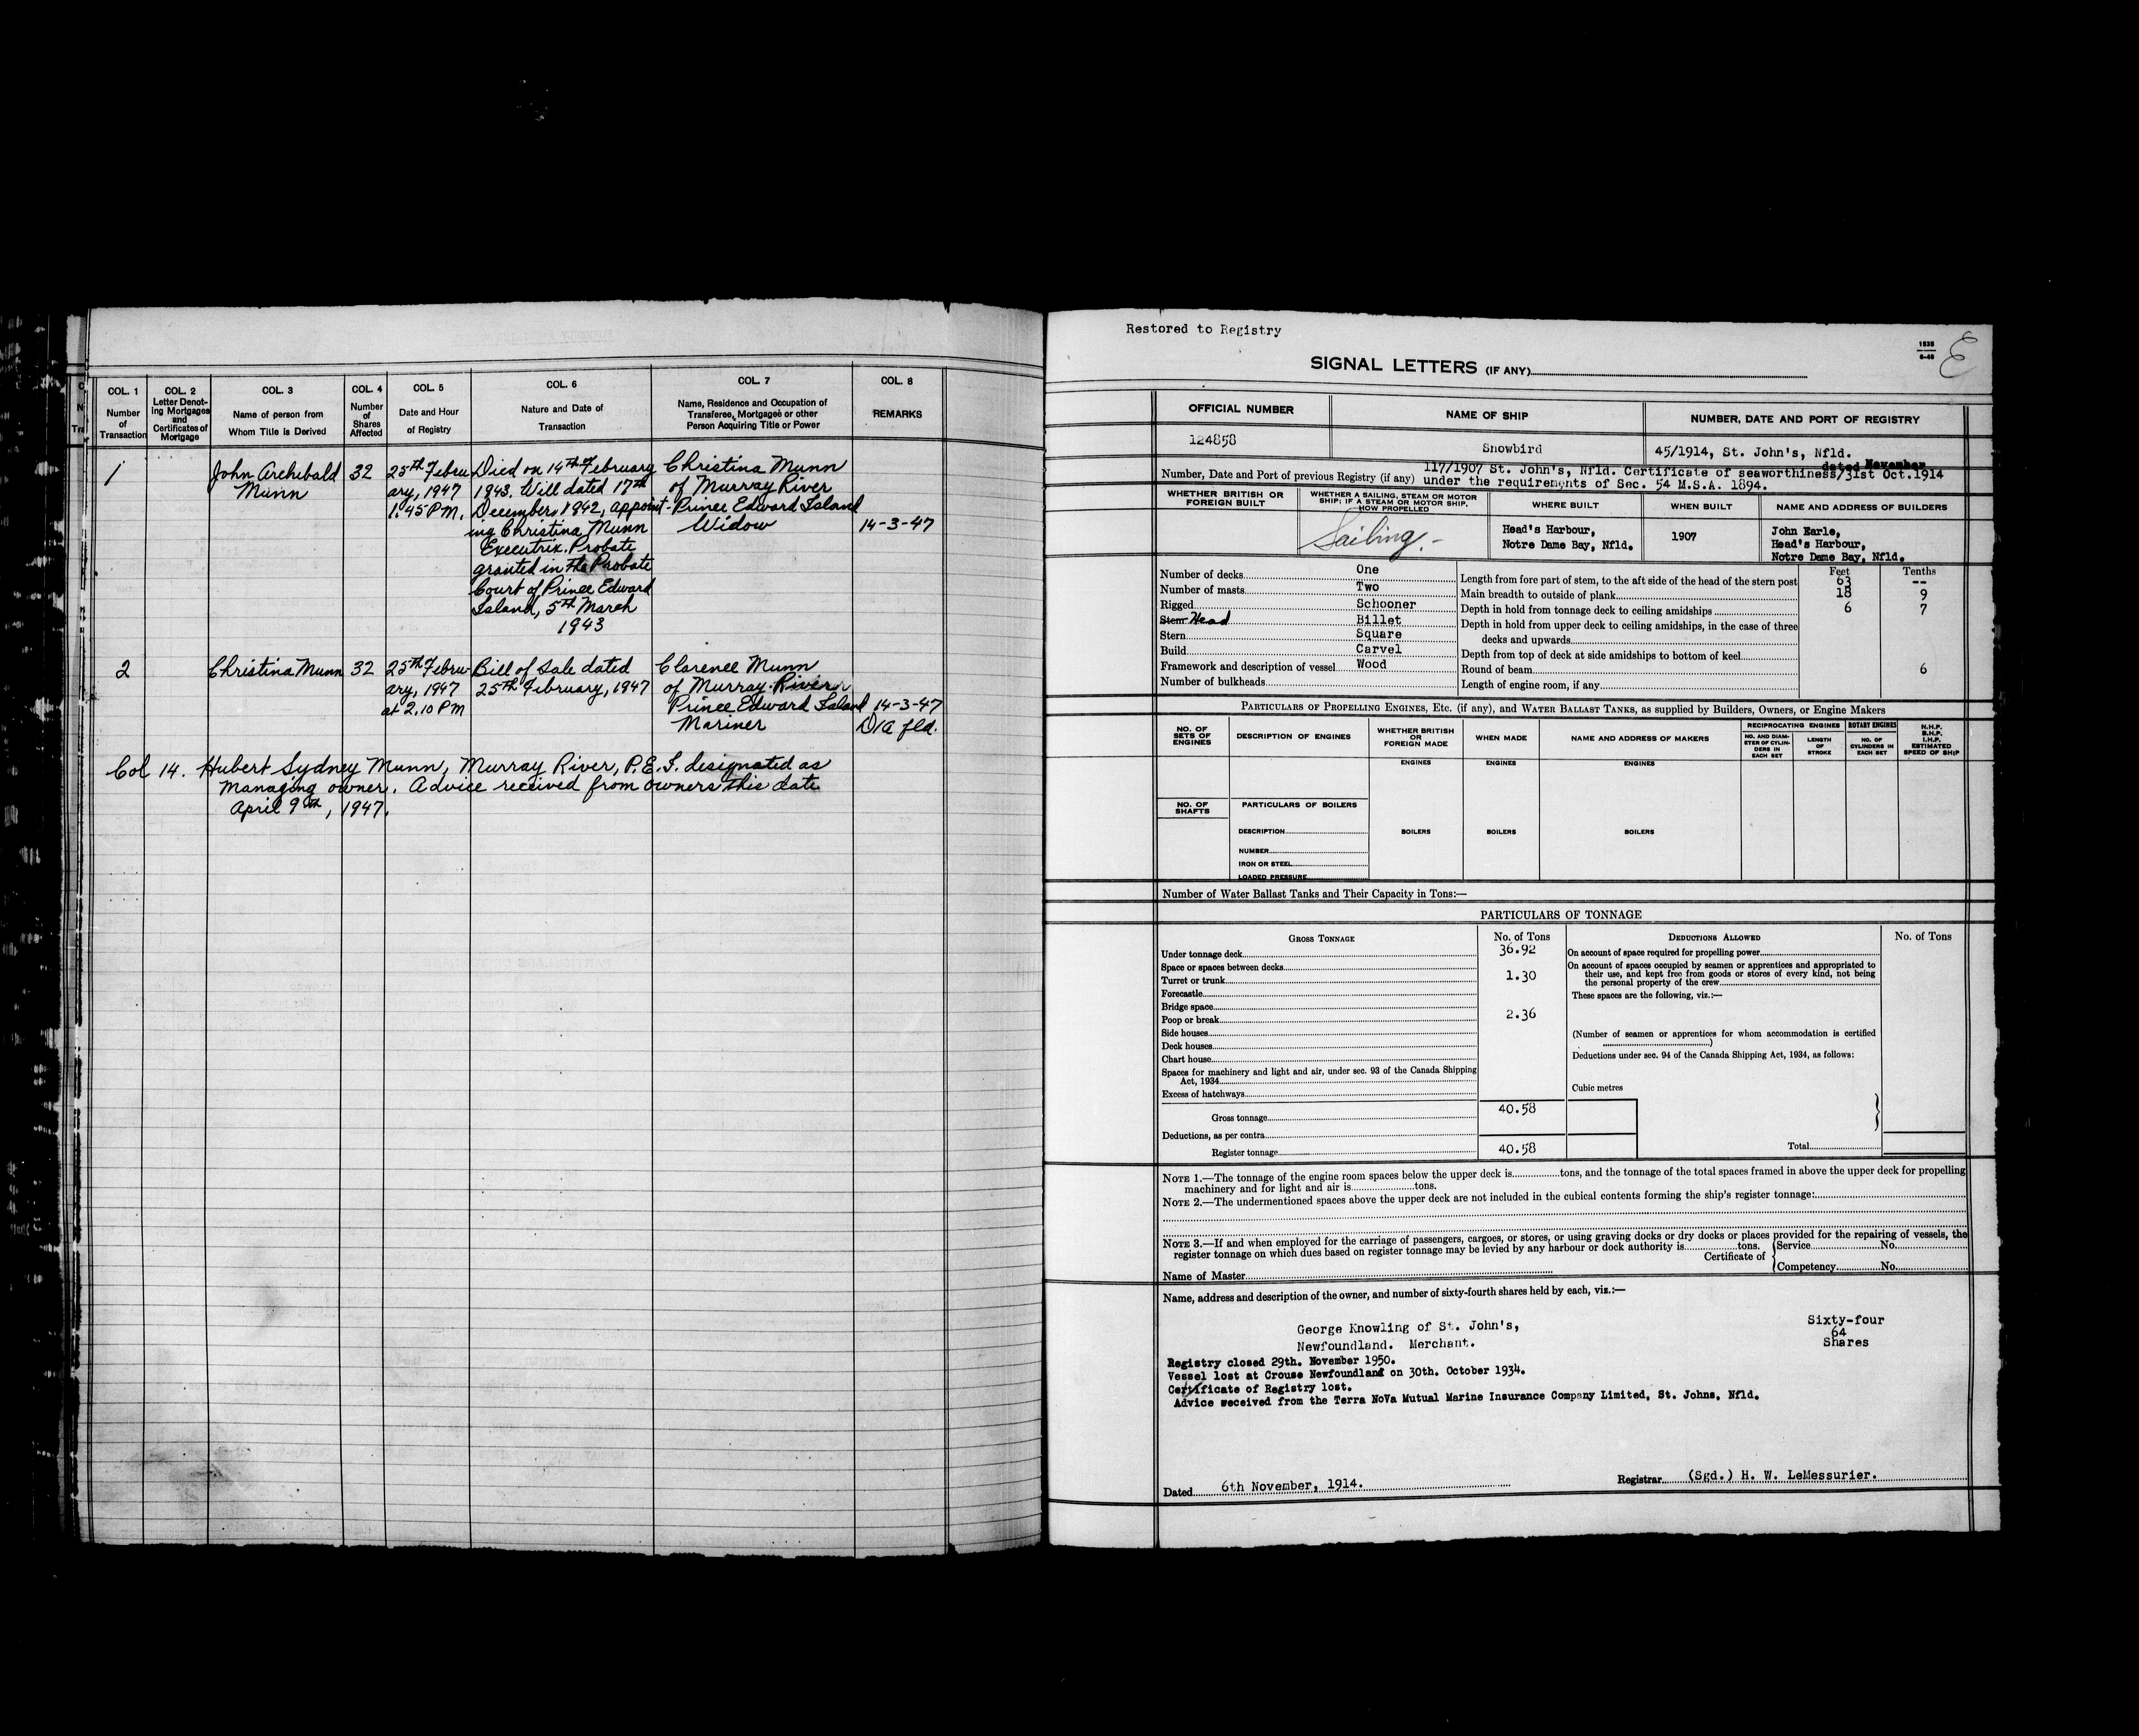 COL. 1
Number
of
Transaction
COL. 2
Letter Denot-
ing Mortgages
and
Certificates of
Mortgage
COL. 3
Name of person from
Whom Title is Derived
COL. 4
Number
of
Shares
Affected
COL. 5
Date and Hour
of Registry
COL. 6
Nature and Date of
Transaction
COL. 7
Name, Residence and Occupation of
Transferee, Mortgagee or other
Person Acquiring Title or Power
COL. 8
REMARKS
1
John Archibald
Munn
32
25th Febru
ary, 1947
1.45 P.M.
Died on 14th of February
1943. Will dated 17th
December 1942, appoint-
ing Christina Munn
Executrix. Probate
granted in the Probate
Court of Prince Edward
Island, 5th March
1943
Christina Munn
of Murray River
Prince Edward Island
Widow
14-3-47
2
Christina Munn
32
25th Febru-
ary, 1947
at 2.10 PM
Bill of Sale dated
25th February, 1947
Clarence Munn
of Murray River
Prince Edward Island
Mariner
14-3-47
D/a fld.
Col 14. Hubert Sydney Munn, Murray River, P.E.I. designated as
Managing owner. Advice received from owners this date
April 9th, 1947.
Restored to Registry
1535
6-45
E
SIGNAL LETTERS (IF ANY)
OFFICIAL NUMBER
NAME OF SHIP
NUMBER, DATE AND PORT OF REGISTRY
124858
Snowbird
45/1914, St. John's, Nfld.
dated November
Number, Date and Port of previous Registry (if any) 117/1907 St. John's, Nfld. Certificate of seaworthiness/31st Oct.1914
under the requirements of Sec. 54 M.S.A. 1894.
WHETHER BRITISH OR
FOREIGN BUILT
WHETHER A SAILING, STEAM OR MOTOR
SHIP; IF A STEAM OR MOTOR SHIP,
HOW PROPELLED
WHERE BUILT
WHEN BUILT
NAME AND ADDRESS OF BUILDERS
Sailing.-
Head's Harbour,
Notre Dame Bay, Nfld.
1907
John Earle,
Head's Harbour,
Notre Dame Bay, Nfld.
Number of decks One
Number of masts Two
Rigged Schooner
Stem Head Billet
Stern Square
Build Carvel
Framework and description of vessel Wood
Number of bulkheads
Feet Tenths
Length from fore part of stem, to the aft side of the head of the stern post 63 --
Main breadth to outside of plank 18 9
Depth in hold from tonnage deck to ceiling amidships 6 7
Depth in hold from upper deck to ceiling amidships, in the case of three
decks and upwards
Depth from top of deck at side amidships to bottom of keel
Round of beam 6
Length of engine room, if any
PARTICULARS OF PROPELLING ENGINES, ETC. (if any), and WATER BALLAST TANKS, as supplied by Builders, Owners, or Engine Makers
NO. OF
SETS OF
ENGINES
DESCRIPTION OF ENGINES
WHETHER BRITISH
OR
FOREIGN MADE
WHEN MADE
NAME AND ADDRESS OF MAKERS
RECIPROCATING ENGINES
ROTARY ENGINES
NO. AND DIAM-
ETER OF CYLIN-
DERS IN
EACH SET
LENGTH
OF
STROKE
NO. OF
CYLINDERS IN
EACH SET
N.H.P.
B.H.P.
I.H.P.
ESTIMATED
SPEED OF SHIP
ENGINES
ENGINES
ENGINES
NO. OF
SHAFTS
PARTICULARS OF BOILERS
DESCRIPTION
BOILERS
BOILERS
BOILERS
NUMBER
IRON OR STEEL
LOADED PRESSURE
Number of Water Ballast Tanks and Their Capacity in Tons:—
PARTICULARS OF TONNAGE
GROSS TONNAGE
No. of Tons
DEDUCTIONS ALLOWED
No. of Tons
Under tonnage deck 36.92
Space or spaces between decks
Turret or trunk 1.30
Forecastle
Bridge space
Poop or break 2.36
Side houses
Deck houses
Chart house
Spaces for machinery and light and air, under sec. 93 of the Canada Shipping
Act, 1934
Excess of hatchways
Gross tonnage 40.58
Deductions, as per contra
Register tonnage 40.58
On account of space required for propelling power
On account of spaces occupied by seamen or apprentices and appropriated to
their use, and kept free from goods or stores of every kind, not being
the personal property of the crew
These spaces are the following, viz.:—
(Number of seamen or apprentices for whom accommodation is certified
)
Deductions under sec. 94 of the Canada Shipping Act, 1934, as follows:
Cubic metres
Total
NOTE 1.—The tonnage of the engine room spaces below the upper deck is tons, and the tonnage of the total spaces framed in above the upper deck for propelling
machinery and for light and air is tons.
NOTE 2.—The undermentioned spaces above the upper deck are not included in the cubical contents forming the ship's register tonnage:
NOTE 3.—If and when employed for the carriage of passengers, cargoes, or stores, or using graving docks or dry docks or places provided for the repairing of vessels, the
register tonnage on which dues based on register tonnage may be levied by any harbour or dock authority is tons.
Certificate of
Service No.
Competency No.
Name of Master
Name, address and description of the owner, and number of sixty-fourth shares held by each, viz.:—
George Knowling of St. John's,
Newfoundland. Merchant.
Sixty-four
64
Shares
Registry closed 29th. November 1950.
Vessel lost at Crouse Newfoundland on 30th. October 1934.
Certificate of Registry lost.
Advice received from the Terra NoVa Mutual Marine Insurance Company Limited, St. Johns, Nfld.
Dated 6th November, 1914.
Registrar (Sgd.) H. W. LeMessurier.